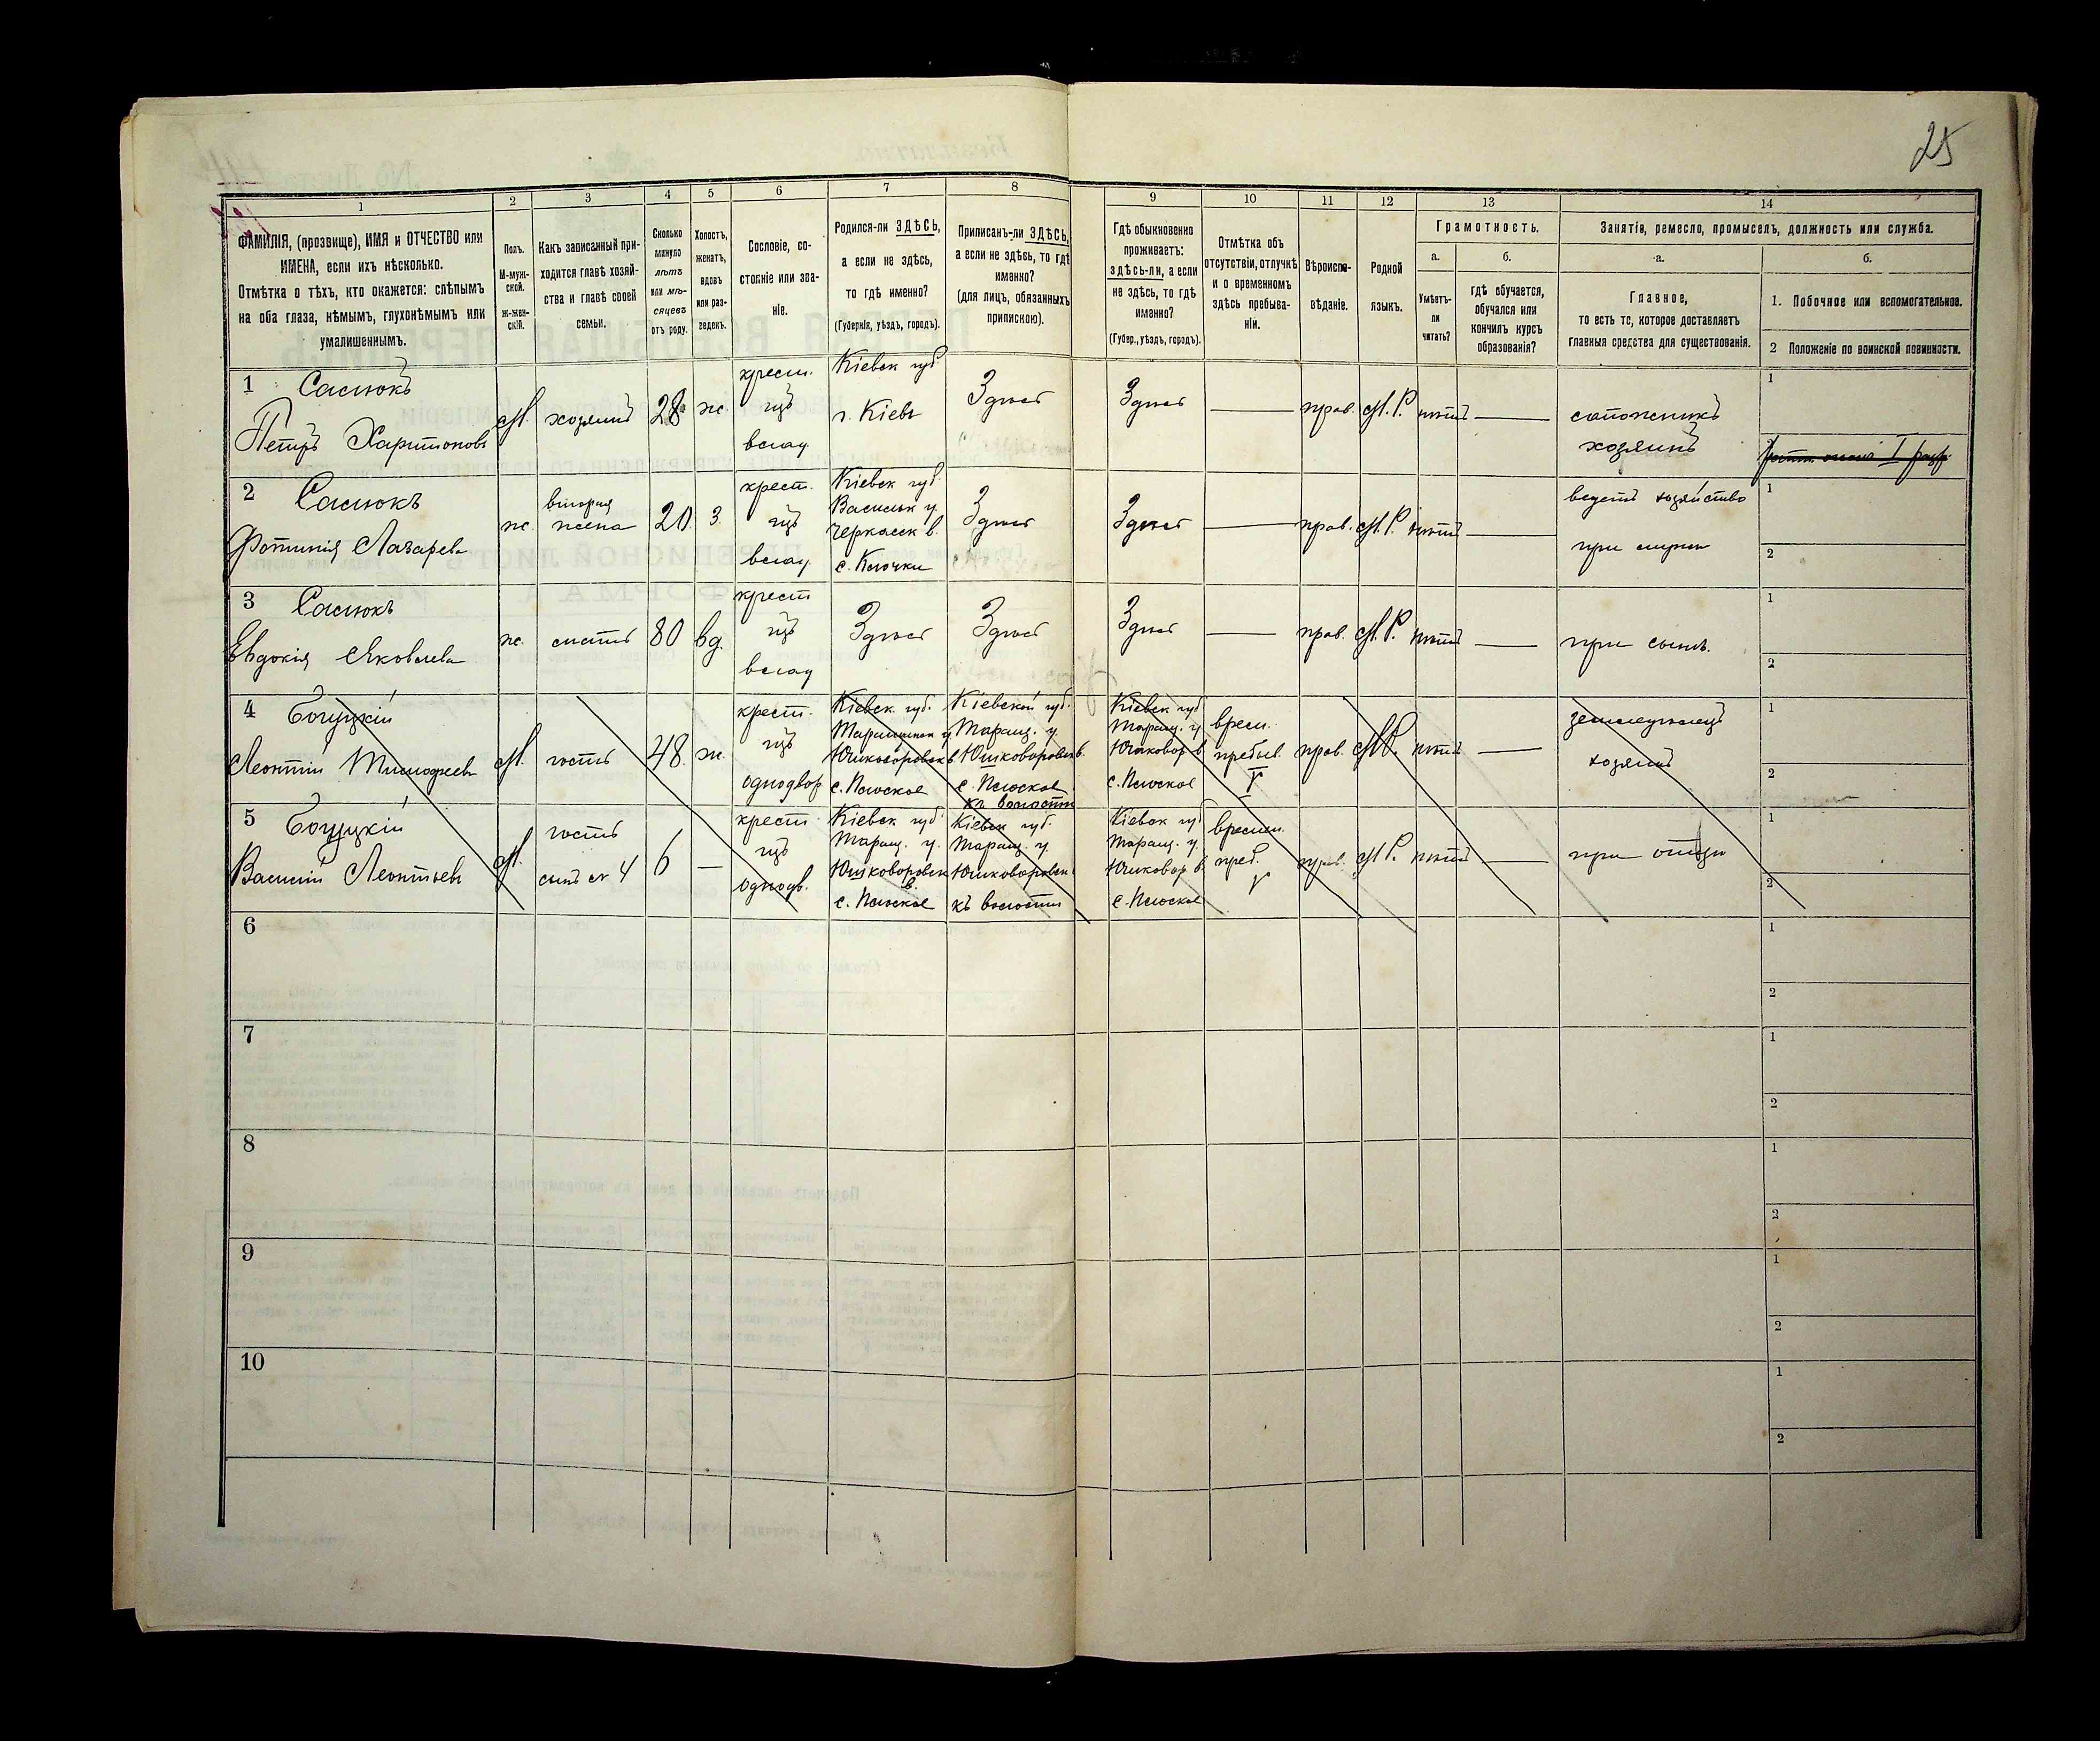 25
1
2
3
4
5
6
7
8
9
10
11
12
13
14
ФАМИЛІЯ, (прозвище), ИМЯ и ОТЧЕСТВО или
ИМЕНА, если ихъ нѣсколько.
Отмѣтка о тѣхъ, кто окажется: слѣпымъ
на оба глаза, нѣмымъ, глухонѣмымъ или
умалишеннымъ.
Полъ.
М-муж-
ской.
Ж-жен-
скій.
Какъ записанный при-
ходится главѣ хозяй-
ства и главѣ своей
семьи.
Сколько
минуло
лѣтъ
или мѣ-
сяцевъ
отъ роду.
Холостъ,
женатъ,
вдовъ
или раз-
веденъ.
Сословіе, со-
стояніе или зва-
ніе.
Родился-ли ЗДѢСЬ,
а если не здѣсь,
то гдѣ именно?
(Губернія, уѣздъ, городъ).
Приписанъ-ли ЗДѢСЬ,
а если не здѣсь, то гдѣ
именно?
(для лицъ, обязанныхъ
припискою).
Гдѣ обыкновенно
проживаетъ:
здѣсь-ли, а если
не здѣсь, то гдѣ
именно?
(Губер., уѣздъ, городъ).
Отмѣтка объ
отсутствіи, отлучкѣ
и о временномъ
здѣсь пребыва-
ніи.
Вѣроиспо-
вѣданіе.
Родной
языкъ.
Грамотность.
а.
Умѣетъ-
ли
читать?
б.
гдѣ обучается,
обучался или
кончилъ курсъ
образованія?
Занятіе, ремесло, промыселъ, должность или служба.
а.
Главное,
то есть то, которое доставляетъ
главныя средства для существованія.
б.
1. Побочное или вспомогательное.
2 Положеніе по воинской повинности.
1 Саслюкъ
Петръ Харитоновъ
М. хозяинъ 28 ж.
крест.
изъ
влад.
Кіевск губ.
г. Кіевъ
Здѣсь
Здѣсь
—
прав. М.Р. нѣтъ —
сапожникъ
хозяинъ
1
2 Саслюкъ
Фотинія Лазарева
ж. вторая
жена 20 з.
крест.
изъ
влад.
Кіевск губ.
Васильк у.
Черкасск в.
с. Клочки
Здѣсь
Здѣсь
—
прав. М.Р. нѣтъ —
ведетъ хозяйство
при мужѣ
1
2
3 Саслюкъ
Евдокія Яковлева
ж. мать 80 вд.
крест
изъ
влад
Здѣсь
Здѣсь
Здѣсь
—
прав. М.Р. нѣтъ —
при сынѣ.
1
2
4 Богуцкій
Леонтій Тимофеев
М. гость 48. ж.
крест.
изъ
однодвор
Кіевск. губ.
с. Плоское
Кіевской губ.
Таращ. у.
Юшковоровск в.
с. Плоское
къ волости
Кіевск губ
Таращ. у
Юшковор. в
с. Плоское
врем.
пребыв.
прав. М.Р. нѣтъ —
земледѣлецъ
хозяинъ
1
2
5 Богуцкій
Василій Леонтьев
М. гость
сынъ № 4 6 —
крест
изъ
однодв.
Кіевск губ.
Таращ. у.
Юшковоровск
в.
с. Плоское
Кіевск губ.
Таращ. у.
Юшковоровск
къ волости
Кіевск губ
Таращ. у.
Юшковор в.
с. Плоское
времен.
преб.
прав. М.Р. нѣтъ —
при отцѣ
1
2
6
1
2
7
1
2
8
1
2
9
1
2
10
1
2